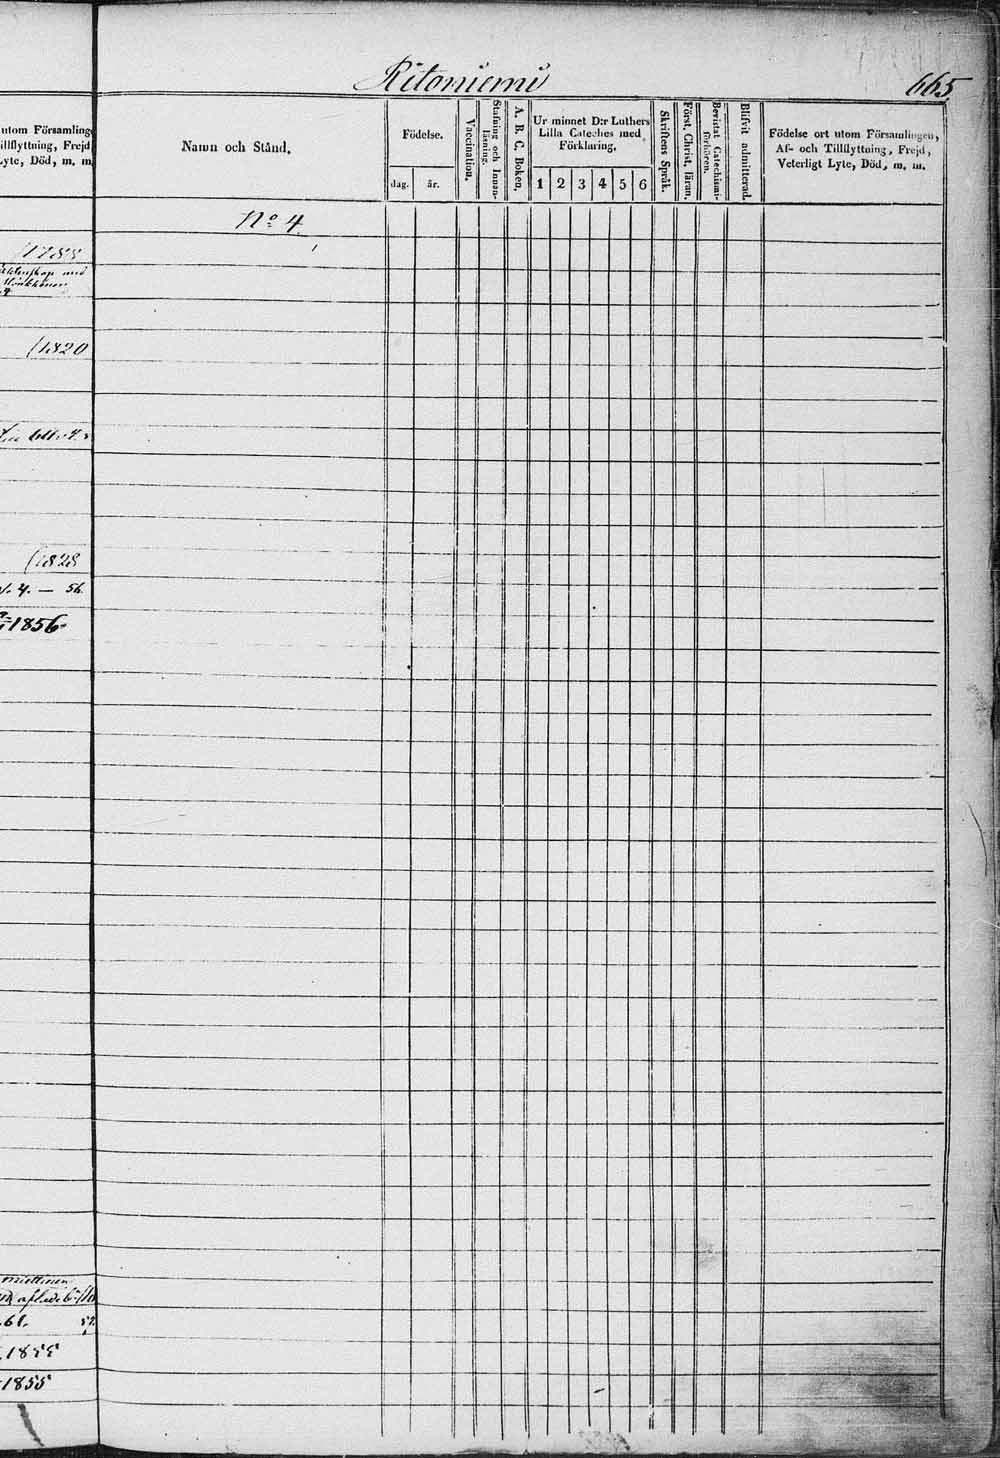 Ritoniemi
665
utom Församling
illflyttning, Frejd
yte, Död, m. m.
1788
(1820
(1828
4. — 56.
1856
miettinen
61. 57.
1855
1855
Namn och Stånd.
Födelse.
dag. år.
Vaccination.
Stafning och Innan-
läsning.
A. B. C. Boken.
Ur minnet D:r Luthers
Lilla Cateches med
Förklaring.
1 2 3 4 5 6
Skriftens Språk.
Först. Christ. läran.
Bevistat Catechismi-
förhören.
Blifvit admitterad.
Födelse ort utom Församlingen,
Af- och Tillflyttning, Frejd,
Veterligt Lyte, Död, m. m.
No 4